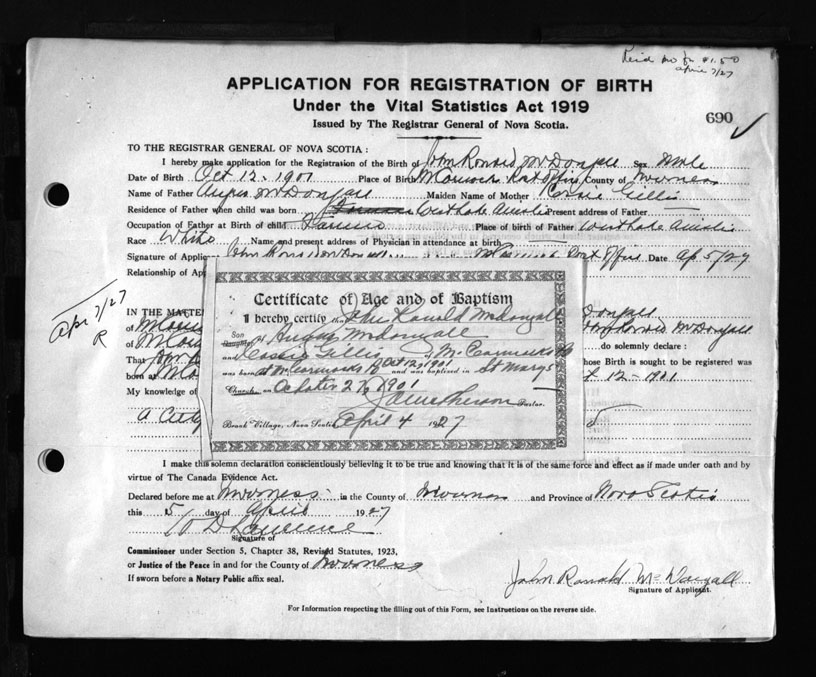 April 7/27
APPLICATION FOR REGISTRATION OF BIRTH
Under the Vital Statistics Act 1919
Issued by The Registrar General of Nova Scotia.
690
TO THE REGISTRAR GENERAL OF NOVA SCOTIA:
I hereby make application for the Registration of the Birth of John Ronald McDougall Sex Male
Date of Birth Oct 12 - 1901 Place of Birth McCormack Post Office County of Inverness
Name of Father Angus McDougall Maiden Name of Mother Cassie Gillis
Residence of Father when child was born West Lake Ainslie Present address of Father
Occupation of Father at Birth of child Farmer Place of birth of Father West Lake Ainslie
Race White Name and present address of Physician in attendance at birth
Signature of Applic John Ronald McDougall McCormack Post Office Date Ap 5/27
Relationship of Ap
Apr 7/27
R
IN THE MATTE
of
of John Ronald McDougall
do solemnly declare :
That
hose Birth is sought to be registered was
born at 12 - 1901
My knowledge of
Certificate of Age and of Baptism
I hereby certify that John Ranald McDougall
Son
Daughter of Angus McDougall
and Cassie Gillis of McCormacks
was born at McCormacks Oct 12, 1901 and was baptized in St Marys
Church on October 27 1901
Pastor.
Brook Village, Nova Scotia April 4 1927
I make this solemn declaration conscientiously believing it to be true and knowing that it is of the same force and effect as if made under oath and by
virtue of The Canada Evidence Act.
Declared before me at Inverness in the County of Inverness and Province of Nova Scotia
this 5 day of April 1927
Signature of
Commissioner under Section 5, Chapter 38, Revised Statutes, 1923,
or Justice of the Peace in and for the County of Inverness
If sworn before a Notary Public affix seal.
John Ranald McDougall
Signature of Applicant.
For Information respecting the filling out of this Form, see Instructions on the reverse side.